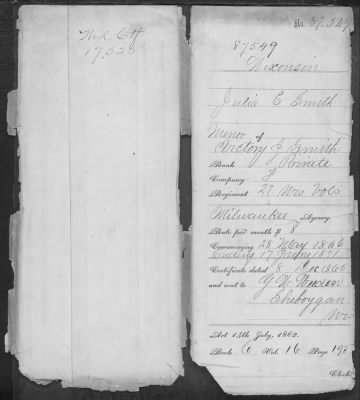 Wid. Ctf
17,328
No. 87,549
87549
Wisconsin
Julia E Smith
Minor of
Victory J Smith
Rank Private
Company F
Regiment 27 Wis Vols
Milwaukee Agency
Rate per month $ 8
Commencing 28 May 1866
Ending 17 June 1871
Certificate dated 8 Dec 1866
and sent to G W Weeden
Sheboygan
Wis
Act 14th July, 1862.
Book 6 Vol. 16 Page 192
Clerk.